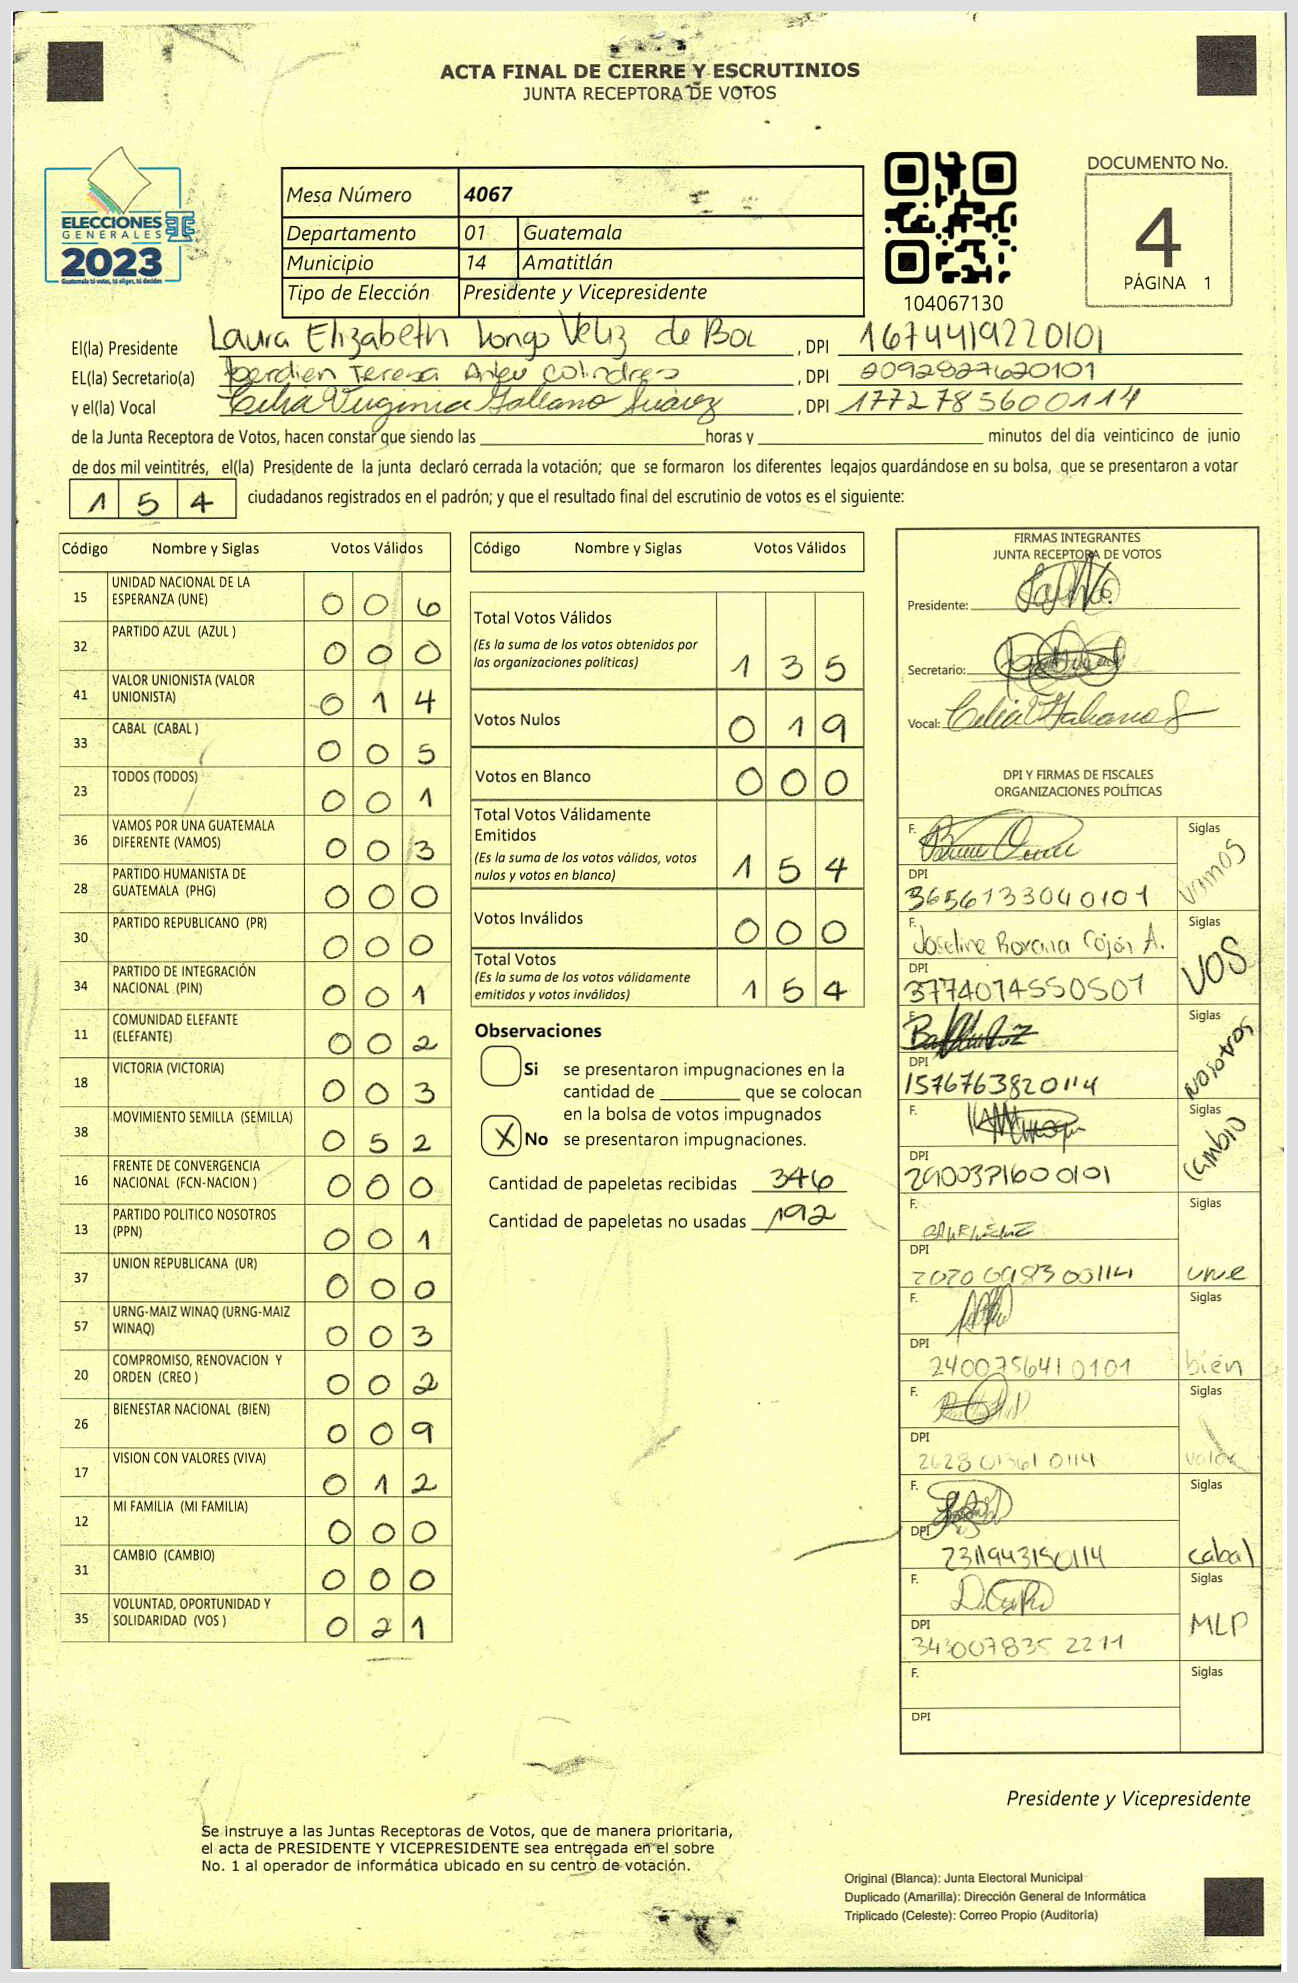 ACTA FINAL DE CIERRE Y ESCRUTINIOS
JUNTA RECEPTORA DE VOTOS
ELECCIONES
GENERALES
2023
Guatemala tú votas, tú eliges, tú decides
Mesa Número 4067
Departamento 01 Guatemala
Municipio 14 Amatitlán
Tipo de Elección Presidente y Vicepresidente
104067130
DOCUMENTO No.
4
PÁGINA 1
El(la) Presidente Laura Elizabeth Longo Veliz de Bol , DPI 1674419220101
EL(la) Secretario(a) Teresa Colindres , DPI 2092827620101
y el(la) Vocal Celia Virginia Galeano Suárez , DPI 1772785600114
de la Junta Receptora de Votos, hacen constar que siendo las horas y minutos del día veinticinco de junio
de dos mil veintitrés, el(la) Presidente de la junta declaró cerrada la votación; que se formaron los diferentes legajos guardándose en su bolsa, que se presentaron a votar
154 ciudadanos registrados en el padrón; y que el resultado final del escrutinio de votos es el siguiente:
Código Nombre y Siglas Votos Válidos
15 UNIDAD NACIONAL DE LA ESPERANZA (UNE) 0 0 6
32 PARTIDO AZUL (AZUL ) 0 0 0
41 VALOR UNIONISTA (VALOR UNIONISTA) 0 1 4
33 CABAL (CABAL ) 0 0 5
23 TODOS (TODOS) 0 0 1
36 VAMOS POR UNA GUATEMALA DIFERENTE (VAMOS) 0 0 3
28 PARTIDO HUMANISTA DE GUATEMALA (PHG) 0 0 0
30 PARTIDO REPUBLICANO (PR) 0 0 0
34 PARTIDO DE INTEGRACIÓN NACIONAL (PIN) 0 0 1
11 COMUNIDAD ELEFANTE (ELEFANTE) 0 0 2
18 VICTORIA (VICTORIA) 0 0 3
38 MOVIMIENTO SEMILLA (SEMILLA) 0 5 2
16 FRENTE DE CONVERGENCIA NACIONAL (FCN-NACION ) 0 0 0
13 PARTIDO POLITICO NOSOTROS (PPN) 0 0 1
37 UNION REPUBLICANA (UR) 0 0 0
57 URNG-MAIZ WINAQ (URNG-MAIZ WINAQ) 0 0 3
20 COMPROMISO, RENOVACION Y ORDEN (CREO ) 0 0 2
26 BIENESTAR NACIONAL (BIEN) 0 0 9
17 VISION CON VALORES (VIVA) 0 1 2
12 MI FAMILIA (MI FAMILIA) 0 0 0
31 CAMBIO (CAMBIO) 0 0 0
35 VOLUNTAD, OPORTUNIDAD Y SOLIDARIDAD (VOS ) 0 2 1
Código Nombre y Siglas Votos Válidos
Total Votos Válidos
(Es la suma de los votos obtenidos por
las organizaciones políticas) 1 3 5
Votos Nulos 0 1 9
Votos en Blanco 0 0 0
Total Votos Válidamente
Emitidos
(Es la suma de los votos válidos, votos
nulos y votos en blanco) 1 5 4
Votos Inválidos 0 0 0
Total Votos
(Es la suma de los votos válidamente
emitidos y votos inválidos) 1 5 4
Observaciones
Si se presentaron impugnaciones en la
cantidad de que se colocan
en la bolsa de votos impugnados
X No se presentaron impugnaciones.
Cantidad de papeletas recibidas 346
Cantidad de papeletas no usadas 192
FIRMAS INTEGRANTES
JUNTA RECEPTORA DE VOTOS
Presidente:
Secretario:
Vocal: Celia V Galeano S
DPI Y FIRMAS DE FISCALES
ORGANIZACIONES POLÍTICAS
F. Siglas
DPI vamos
3656133040101
F. Joseline Roxana Cojón A. Siglas
DPI VOS
3774074550501
F. Siglas
DPI Nosotros
1576763820114
F. Siglas
DPI Cambio
2900371600101
F. Siglas
DPI
2020098300114 une
F. Siglas
DPI
2400756410101 bien
F. Siglas
DPI
2628013610114 valor
F. Siglas
DPI
2311943150114 cabal
F. Siglas
DPI MLP
3430078352211
F. Siglas
DPI
Presidente y Vicepresidente
Se instruye a las Juntas Receptoras de Votos, que de manera prioritaria,
el acta de PRESIDENTE Y VICEPRESIDENTE sea entregada en el sobre
No. 1 al operador de informática ubicado en su centro de votación.
Original (Blanca): Junta Electoral Municipal
Duplicado (Amarilla): Dirección General de Informática
Triplicado (Celeste): Correo Propio (Auditoría)